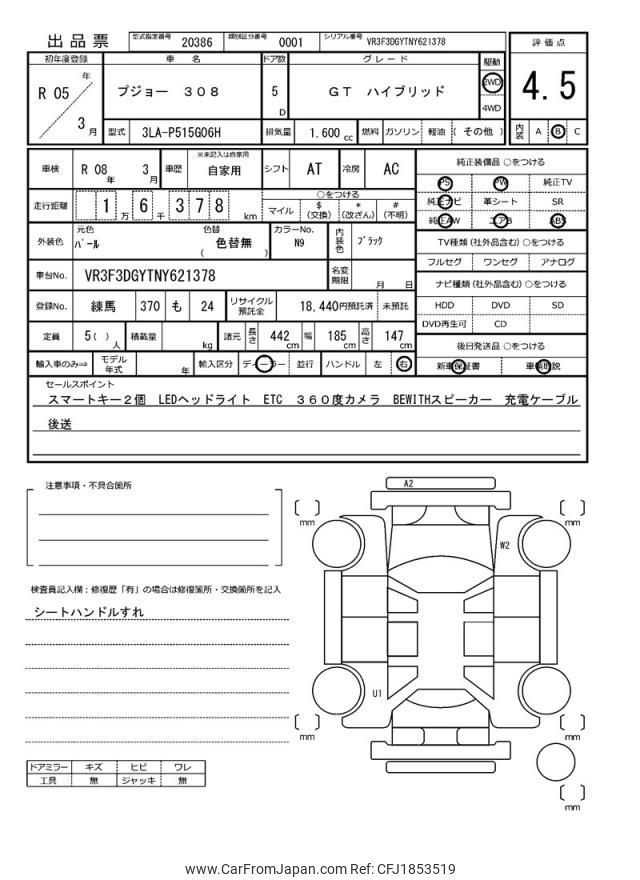 出品票 型式指定番号 20386 類別区分番号 0001 シリアル番号 VR3F3DGYTNY621378
評価点
4.5
内装 A B C
初年度登録 車名 ドア数 グレード 駆動
R 05 年 3 月 プジョー 308 5 D GT ハイブリッド 2WD 4WD
型式 3LA-P515G06H 排気量 1.600 cc 燃料 ガソリン 軽油 ( その他 )
車検 R 08 年 3 月 車歴 ※未記入は自家用 自家用 シフト AT 冷房 AC
走行距離 1 万 6 千 3 7 8 km ○をつける
マイル $(交換) *(改ざん) #(不明)
外装色 元色 パール 色替 色替無 ( ) カラーNo. N9 内装色 ブラック
車台No. VR3F3DGYTNY621378 名変期限 月 日
登録No. 練馬 370 も 24 リサイクル預託金 18,440円預託済 未預託
定員 5( ) 人 積載量 kg 諸元 長さ 442 cm 幅 185 cm 高さ 147 cm
輸入車のみ⇨ モデル年式 年 輸入区分 ディーラー 並行 ハンドル 左 右
純正装備品 ○をつける
PS PW 純正TV
純正ナビ 革シート SR
純正AW エアB ABS
TV種類 (社外品含む) ○をつける
フルセグ ワンセグ アナログ
ナビ種類 (社外品含む) ○をつける
HDD DVD SD
DVD再生可 CD
後日発送品 ○をつける
新車保証書 車輌取説
セールスポイント
スマートキー2個 LEDヘッドライト ETC 360度カメラ BEWITHスピーカー 充電ケーブル
後送
注意事項・不具合箇所
検査員記入欄：修復歴「有」の場合は修復箇所・交換箇所を記入
シートハンドルすれ
A2
W2
U1
mm
mm
mm
mm
mm
ドアミラー キズ ヒビ ワレ
工具 無 ジャッキ 無
www.CarFromJapan.com Ref: CFJ1853519